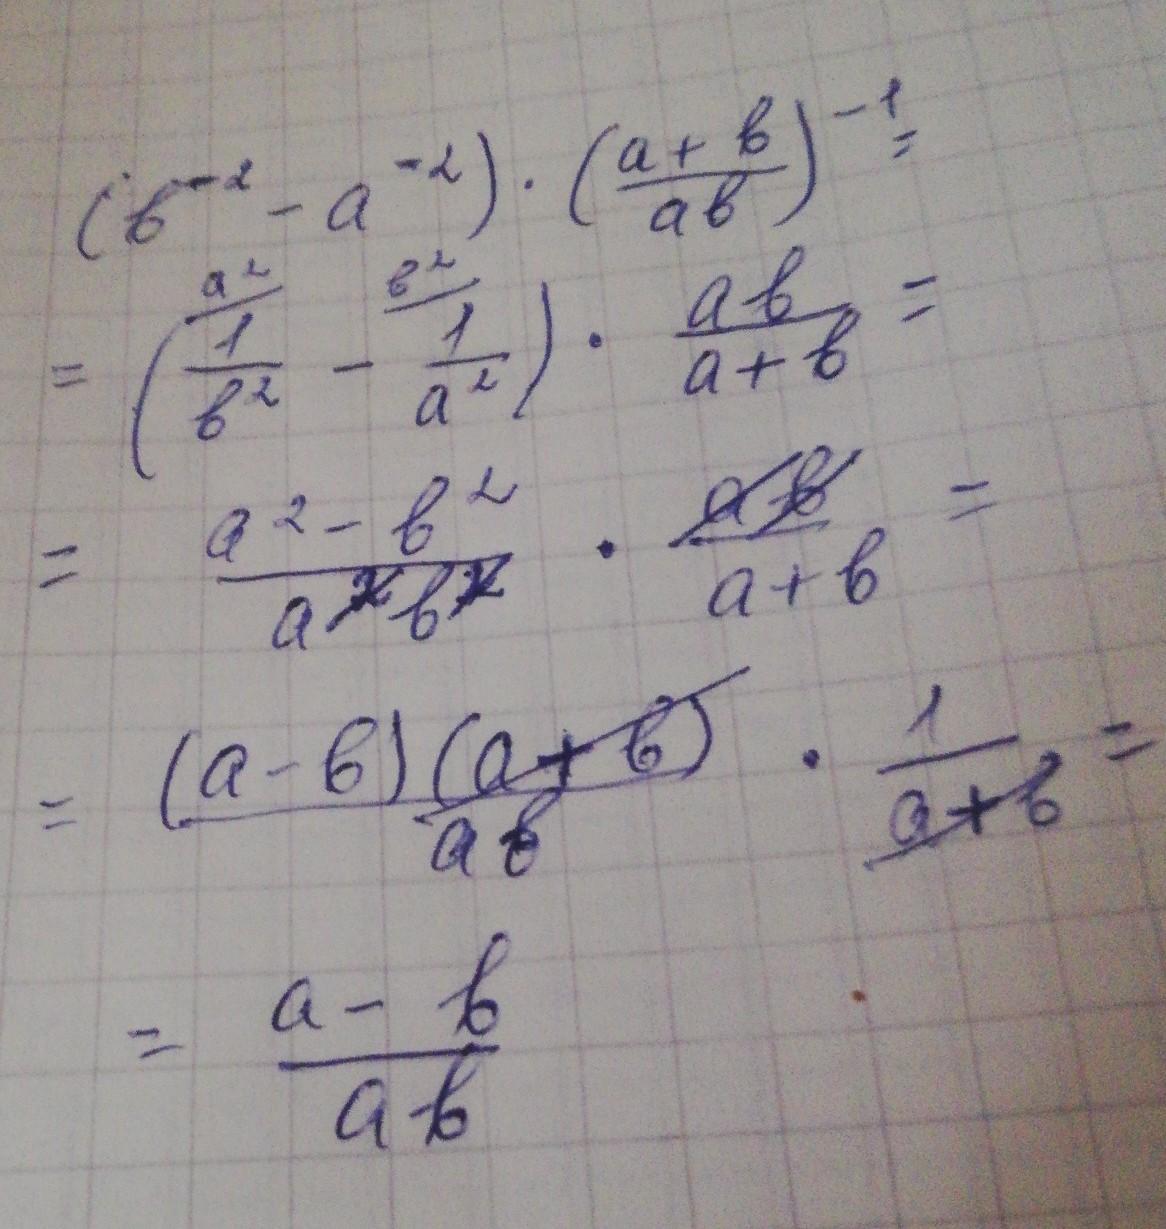 (b⁻² - a⁻²) · ((a + b)/(ab))⁻¹ =
= (a²/ 1/b² - b²/ 1/a²) · ab/(a + b) =
= (a² - b²)/(a²b²) · ab/(a + b) =
= (a - b)(a + b)/(ab) · 1/(a + b) =
= (a - b)/(ab)